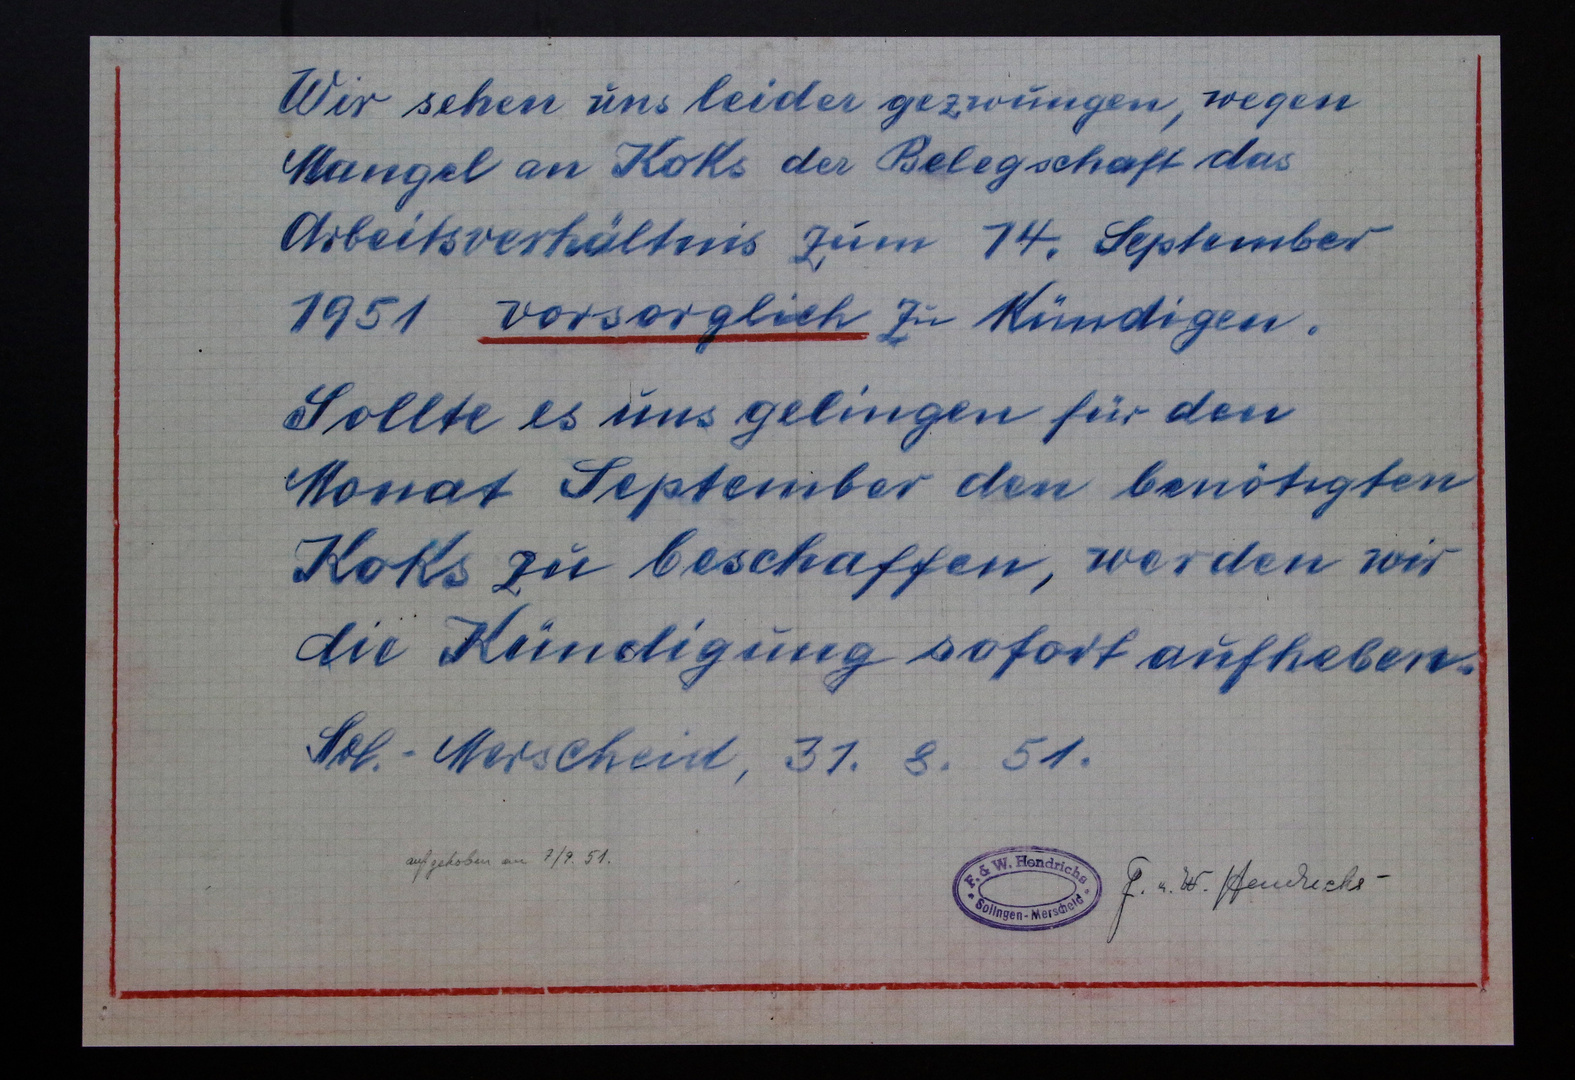 Wir sehen uns leider gezwungen, wegen
Mangel an Koks der Belegschaft das
Arbeitsverhältnis zum 14. September
1951 vorsorglich zu Kündigen.
Sollte es uns gelingen für den
Monat September den benötigten
Koks zu beschaffen, werden wir
die Kündigung sofort aufheben.
Sol.-Merscheid, 31. 8. 51.
aufgehoben am 7/9. 51.
F. & W. Hendrichs
Solingen-Merscheid
F. u. W. Hendrichs